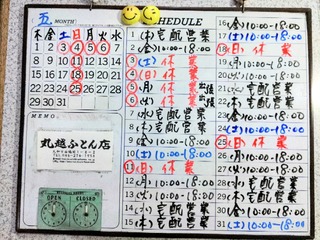 五 MONTH HEDULE
木金土日月火水
1 2 3 4 5 6 7
8 9 10 11 12 13 14
15 16 17 18 19 20 21
22 23 24 25 26 27 28
29 30 31
MEMO
丸越ふとん店
OPEN CLOSED
1 (木) 宅配営業
2 (金) 10:00-18:00
3 (土) 休業
4 (日) 休業
5 (月) 休業 出張
6 (火) 休業 出張
7 (水) 宅配営業
8 (木) 宅配営業
9 (金) 10:00-18:00
10 (土) 10:00-18:00
11 (日) 休業
12 (月) 10:00-18:00
13 (火) 10:00-18:00
14 (水) 宅配営業
15 (木) 宅配営業
16 (金) 10:00-18:00
17 (土) 10:00-18:00
18 (日) 休業
19 (月) 10:00-18:00
20 (火) 10:00-18:00
21 (水) 宅配営業
22 (木) 宅配営業
23 (金) 10:00-18:00
24 (土) 10:00-18:00
25 (日) 休業
26 (月) 10:00-18:00
27 (火) 10:00-18:00
28 (水) 宅配営業
29 (木) 宅配営業
30 (金) 10:00-18:00
31 (土) 10:00-18:00